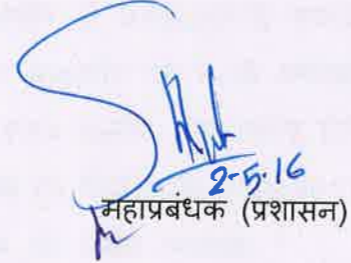 2-5-16
महाप्रबंधक (प्रशासन)